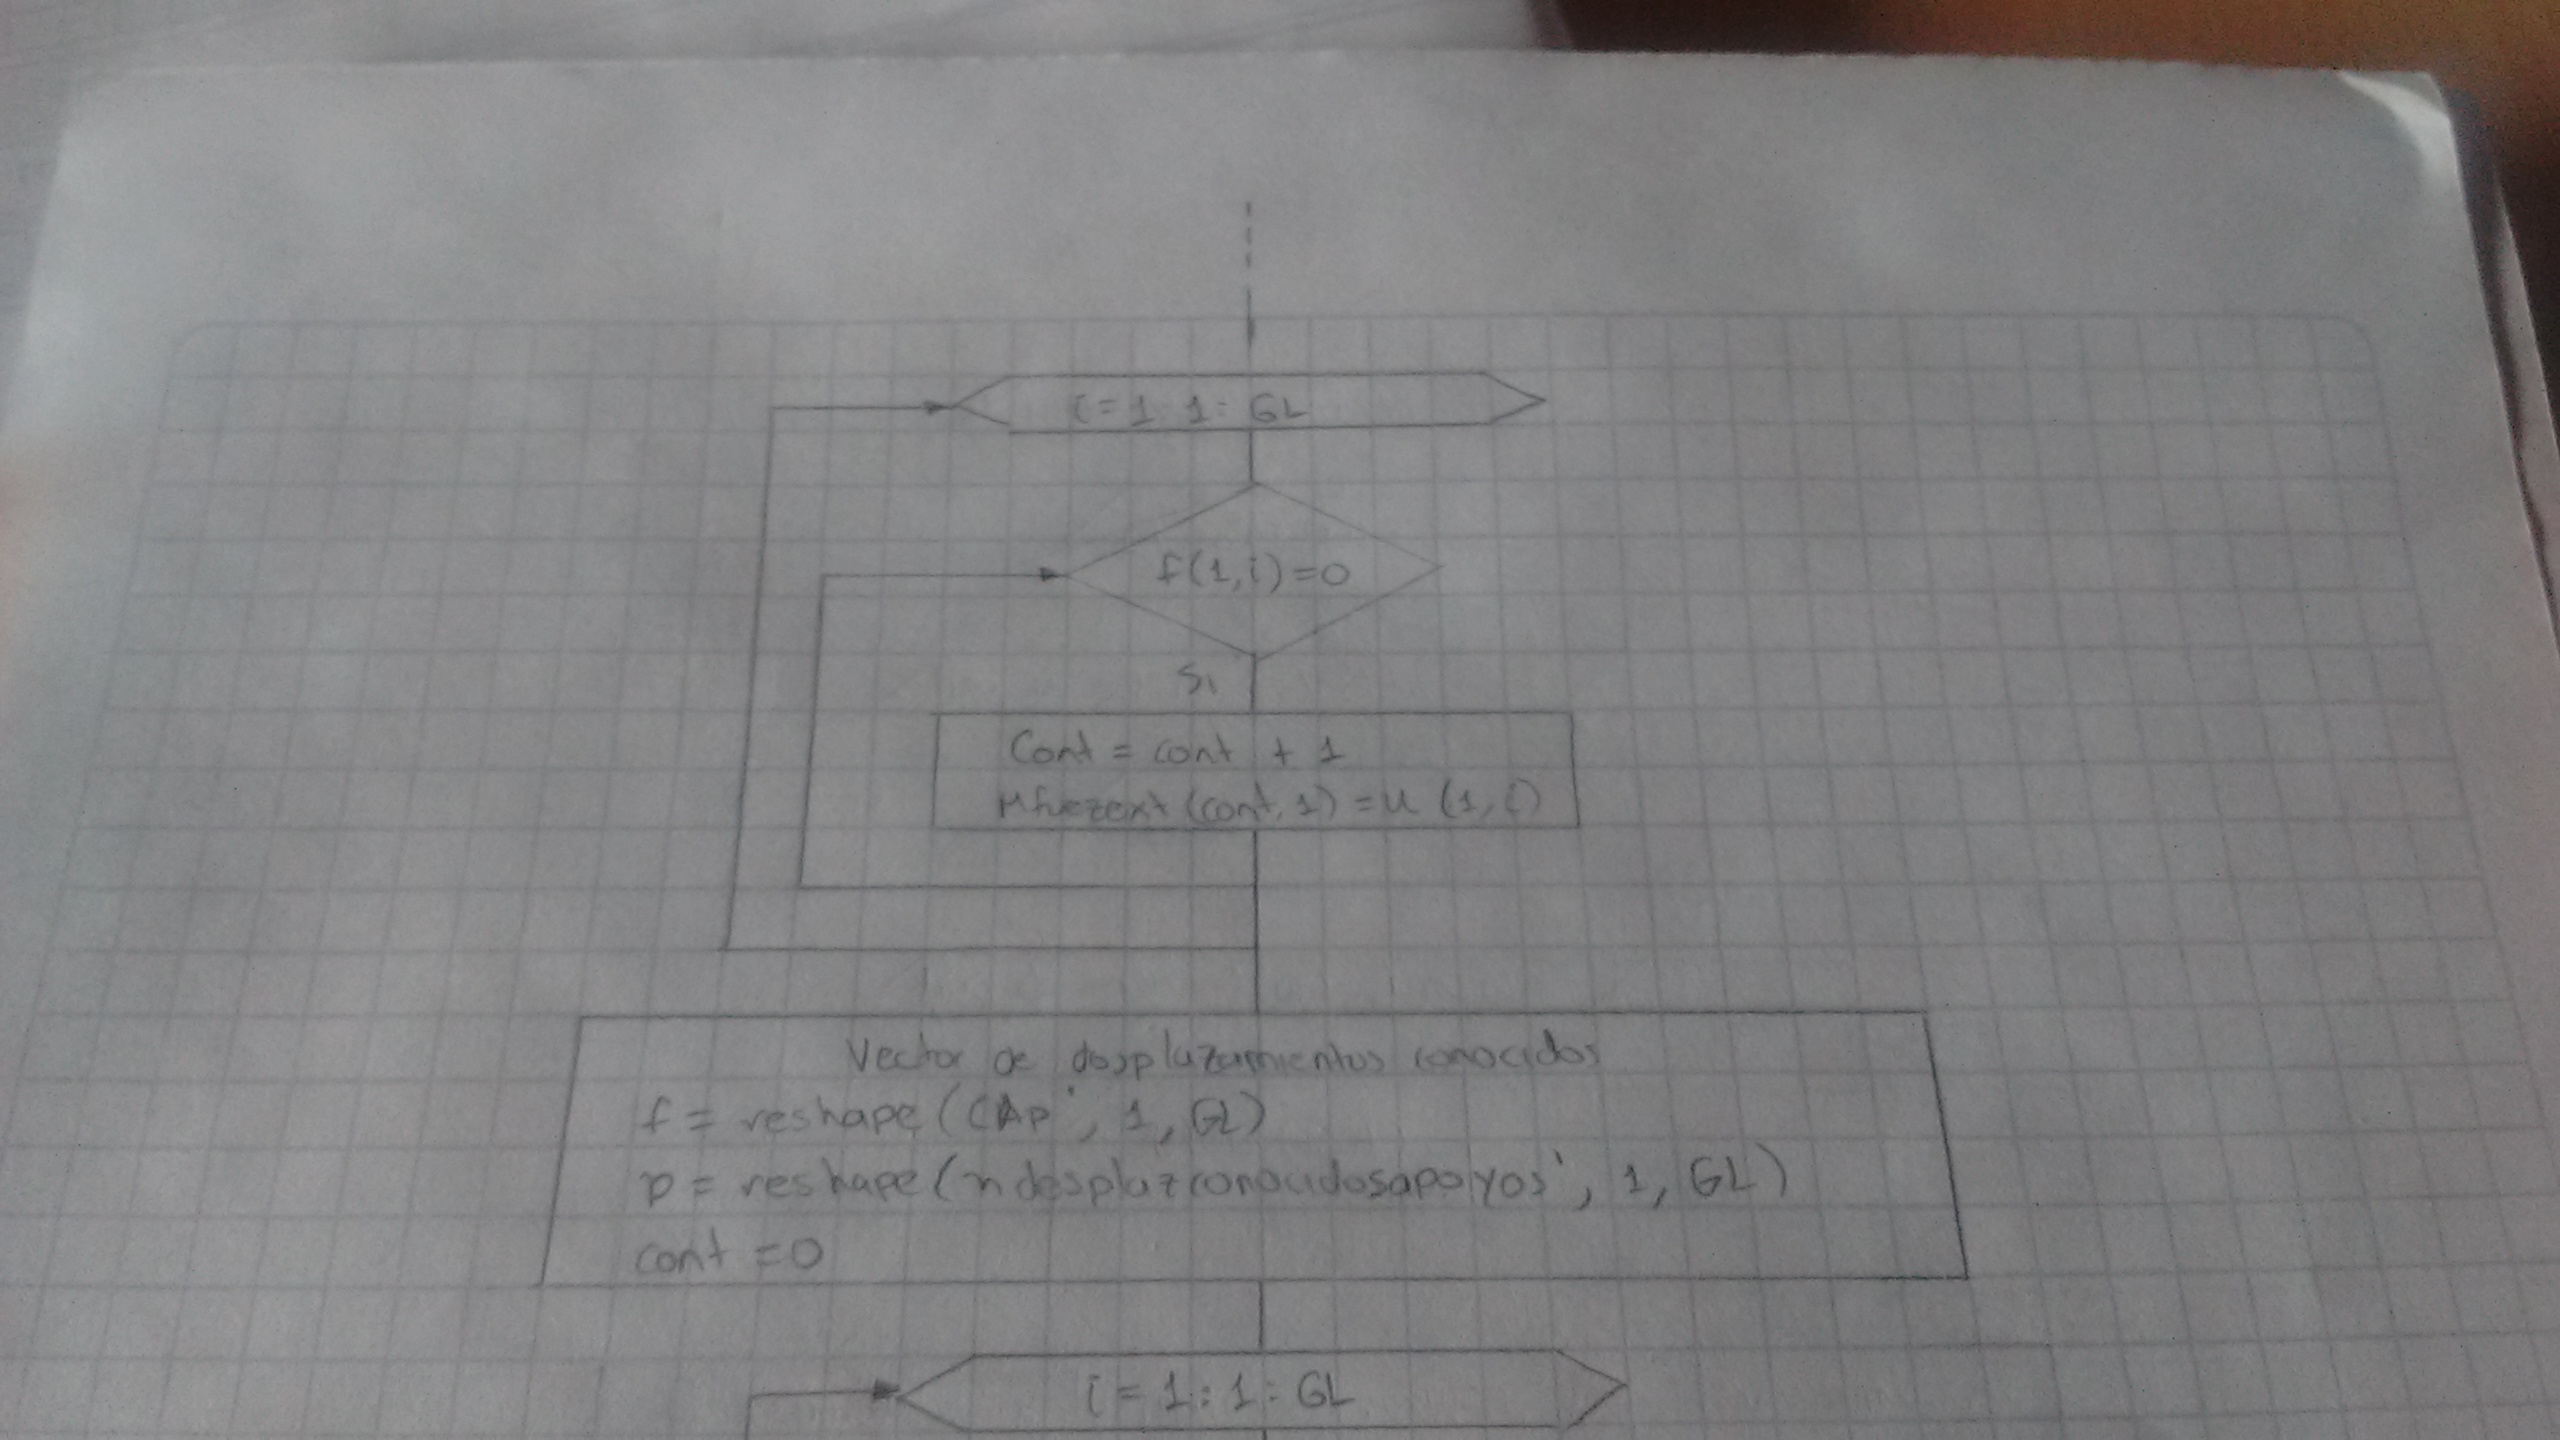 i = 1 : 1 : GL
f(1,i)=0
Si
Cont = cont + 1
Mfuezext (cont, 1) = u (1, i)
Vector de desplazamientos conocidos
f = reshape (CAp', 1, GL)
p = reshape (ndesplazconocidosapoyos', 1, GL)
cont = 0
i = 1 : 1 : GL